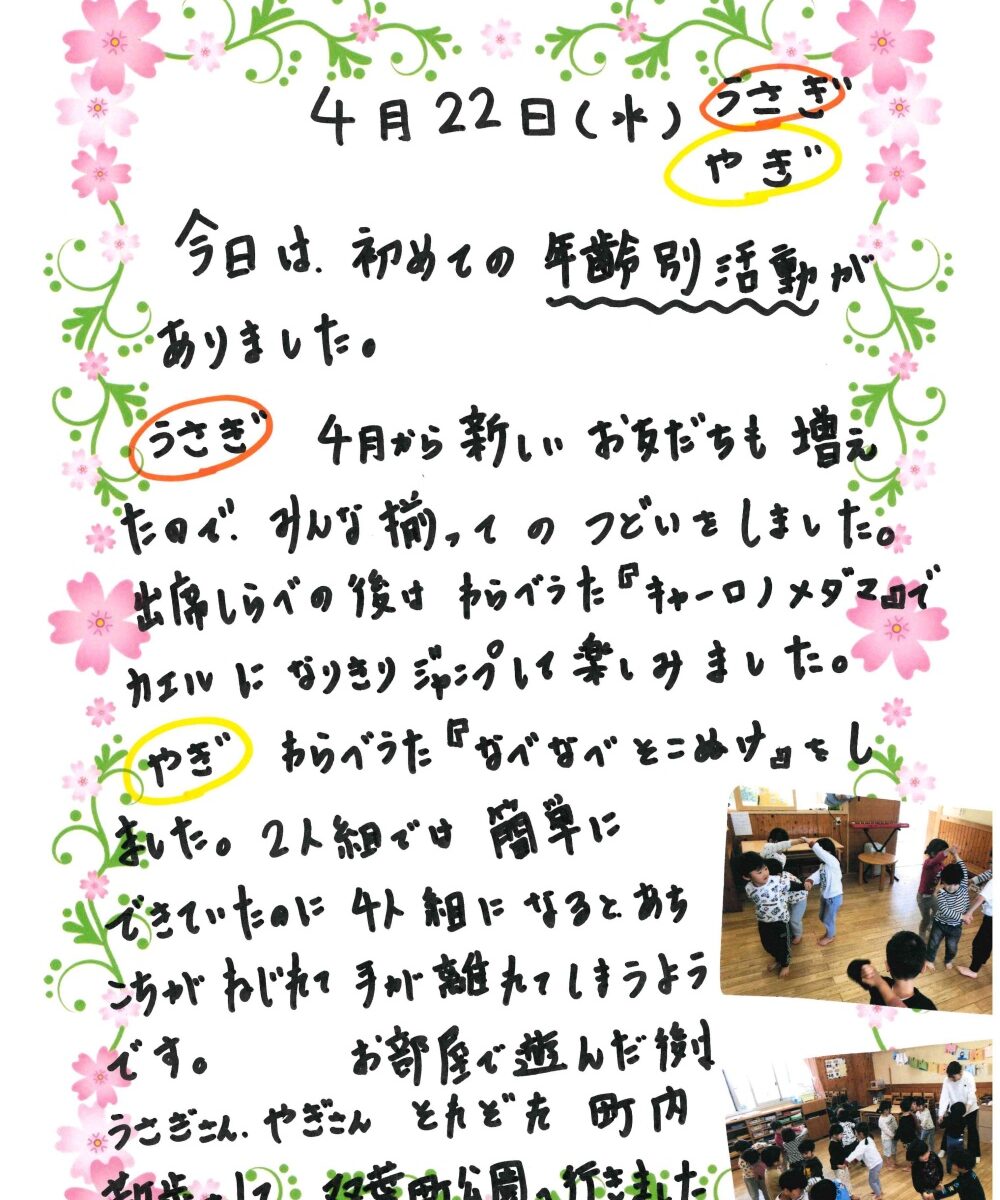 4月22日(水) うさぎ
やぎ
今日は、初めての年齢別活動が
ありました。
うさぎ 4月から新しいお友だちも増え
たので、みんな揃ってのつどいをしました。
出席しらべの後はわらべうた『キャーロノメダマ』で
カエルになりきりジャンプして楽しみました。
やぎ わらべうた『なべなべそこぬけ』をし
ました。2人組では簡単に
できていたのに4人組になると、あち
こちがねじれて手が離れてしまうよう
です。 お部屋で遊んだ後は
うさぎさん、やぎさん それぞれ町内
散歩をして 双葉町公園へ行きました